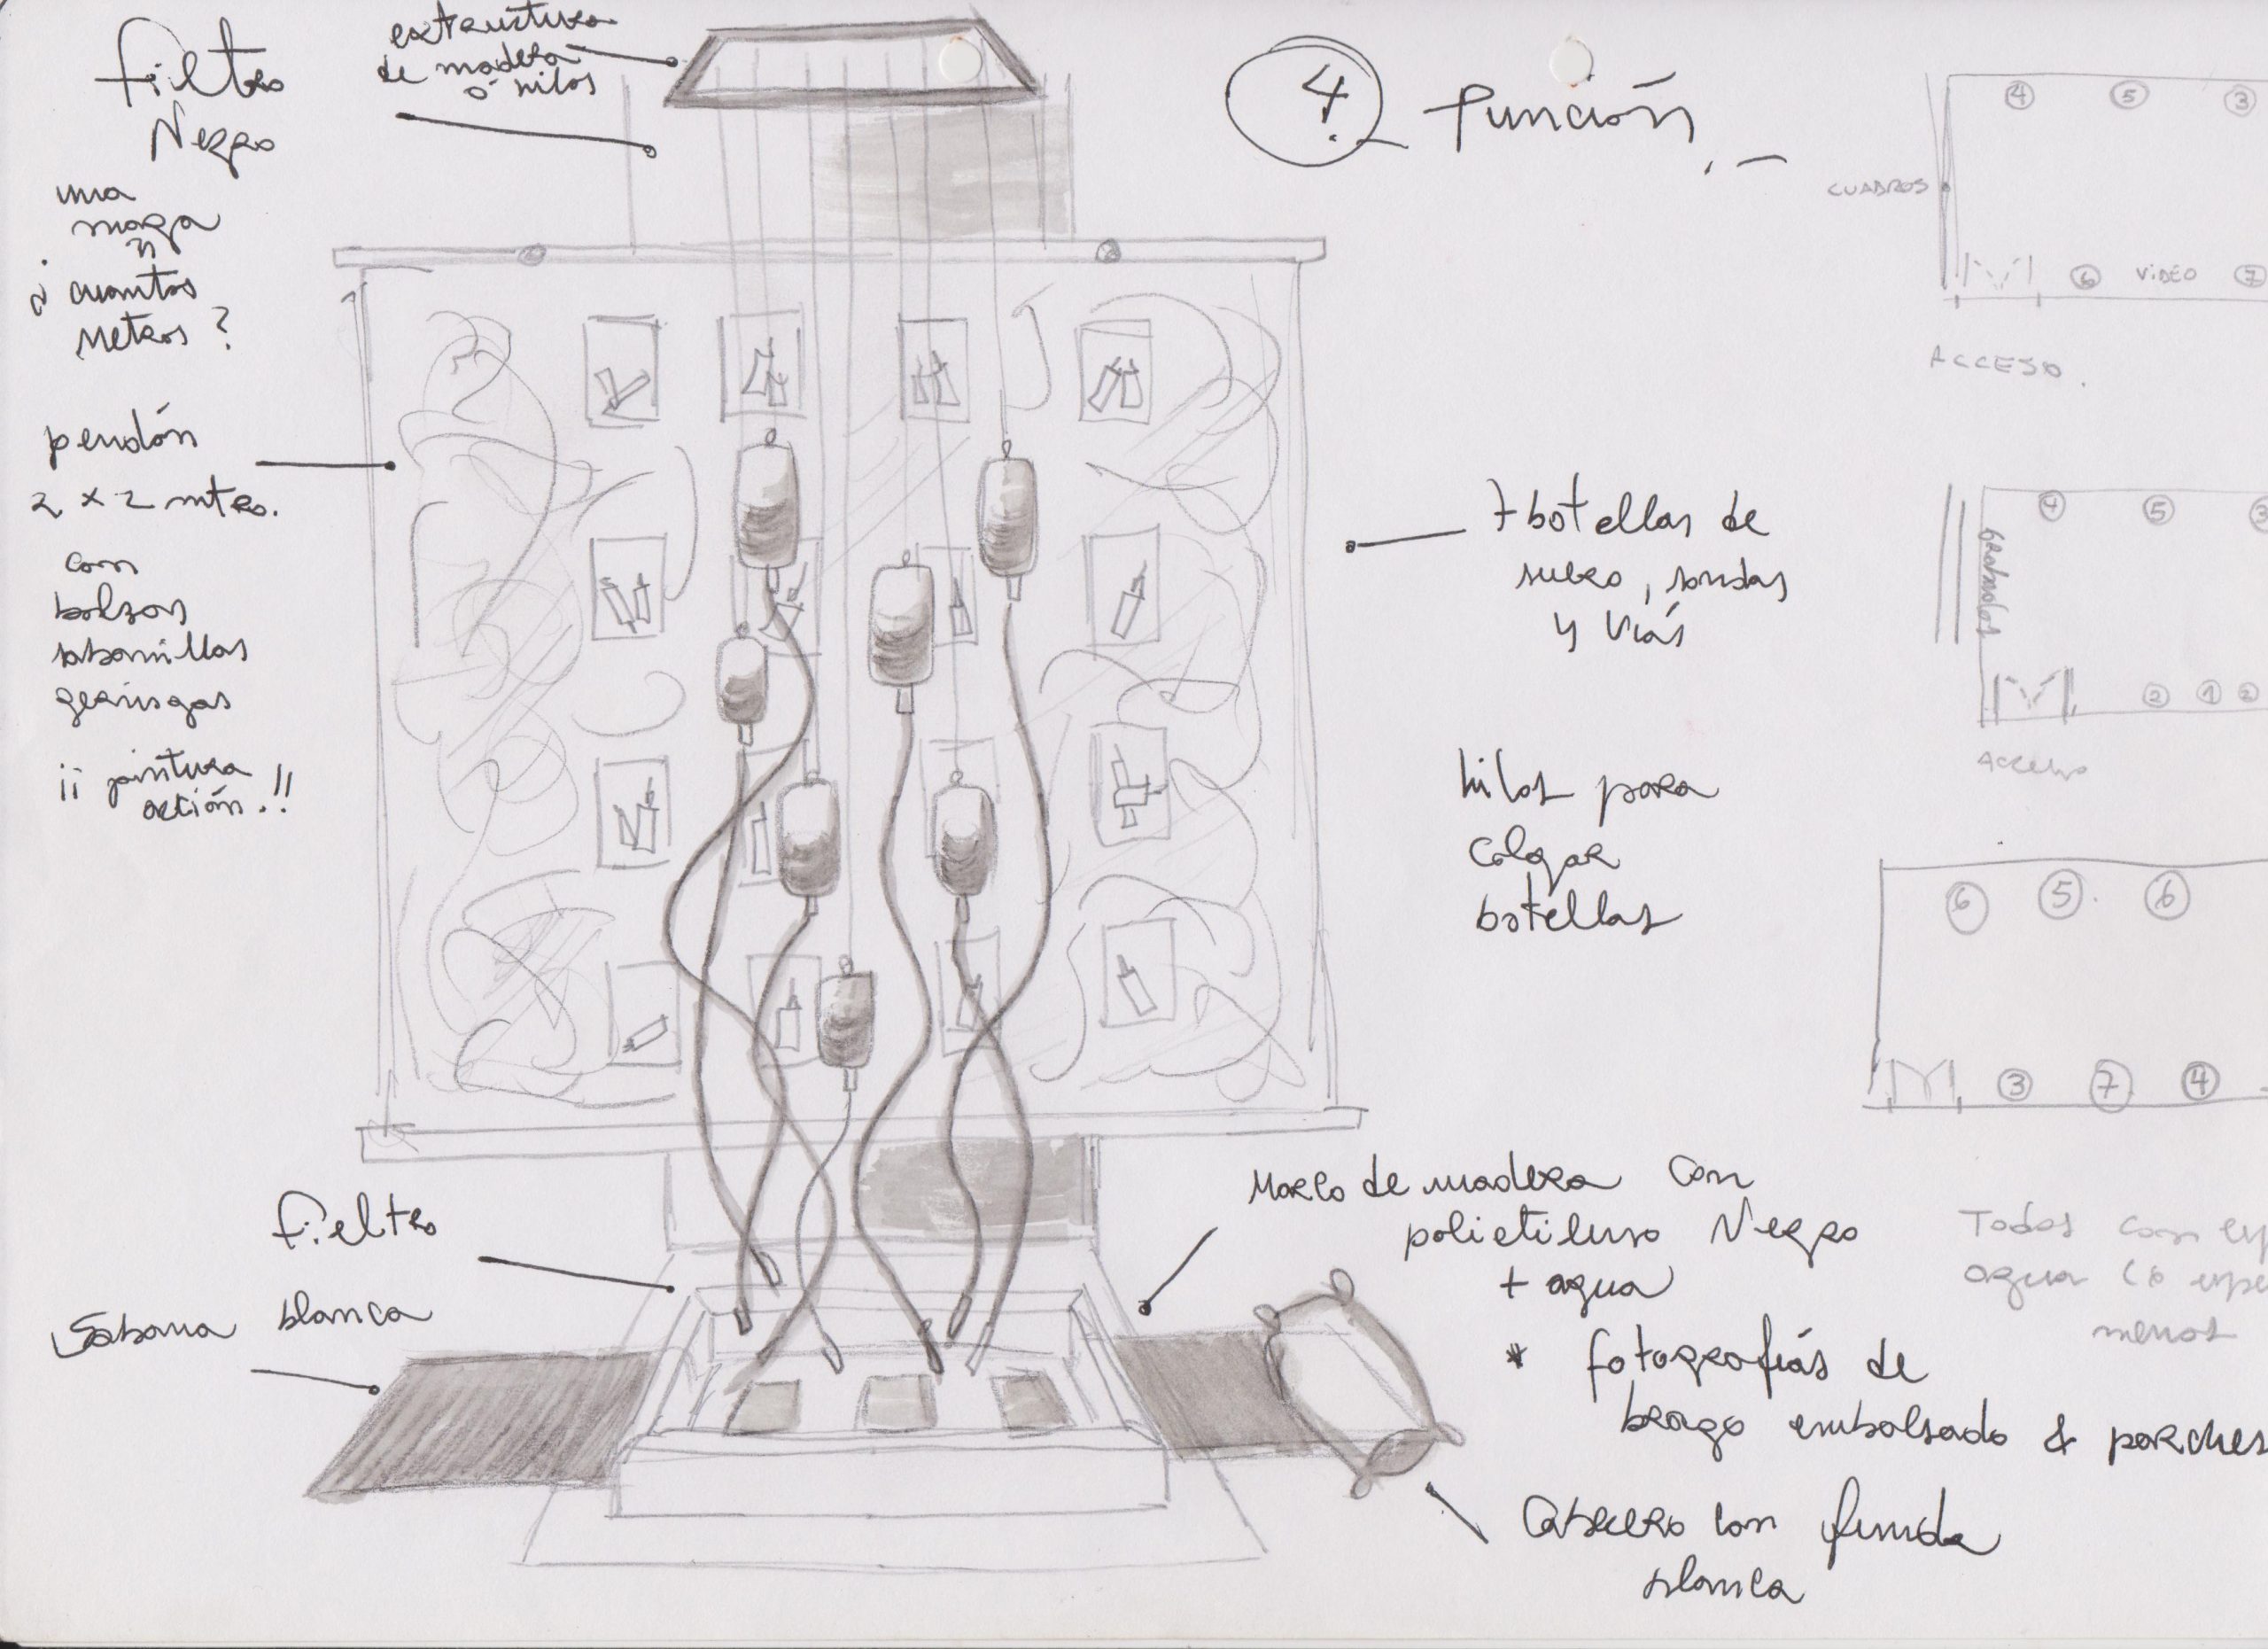 fieltro
Negro
una
¿ cuantos
metros ?
pendón
2 x 2 mtro.
con
bolsas
sabanillas
geringas
¡¡ pintura
acción.!!
extructura
de madera
o hilos
4.- función.-
7 botellas de
suero, sondas
y vías
hilos para
colgar
botellas
fieltro
Sabana blanca
Marco de madera con
polietileno Negro
+ agua
* fotografías de
brazo embolsado & parches
Cabecero con funda
blanca
4 5 3
CUADROS
6 VIDEO 7
ACCESO.
4 5 3
grabados
2 1 2
Acceso
6 5. 6
3 7 4
Todos con
agua
menos